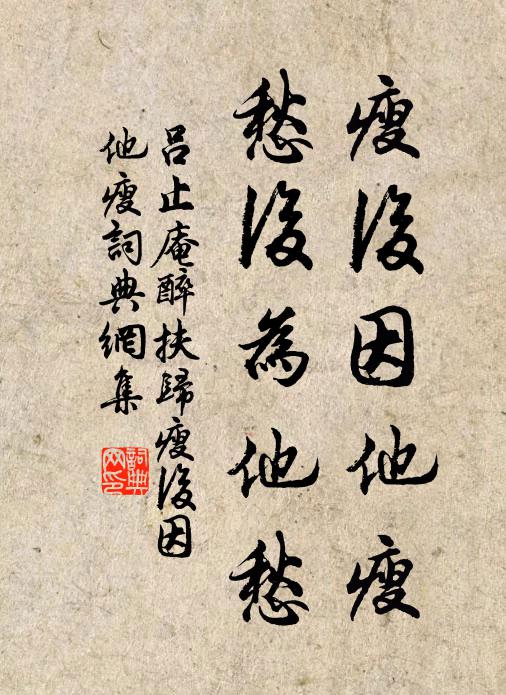 瘦後因他瘦
愁後為他愁
呂止庵醉扶歸瘦後因
他瘦詞典網集
詞典
网印